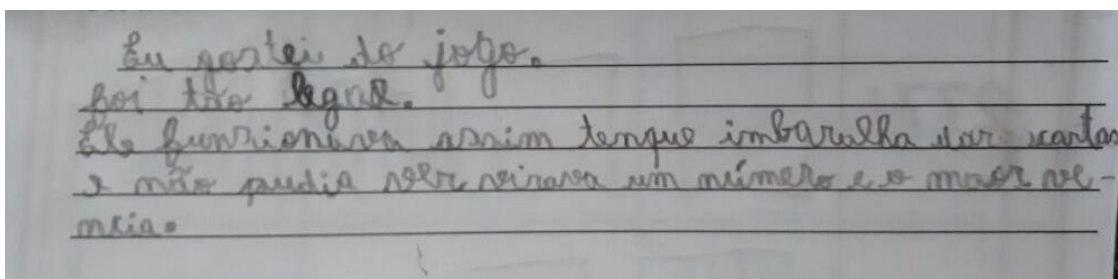 Eu gostei do jogo.
Foi tão legal.
Ele funsionava assim tenque imbaralha dar cartas
e não pudia ver virava um número e o maior ve-
mcia.